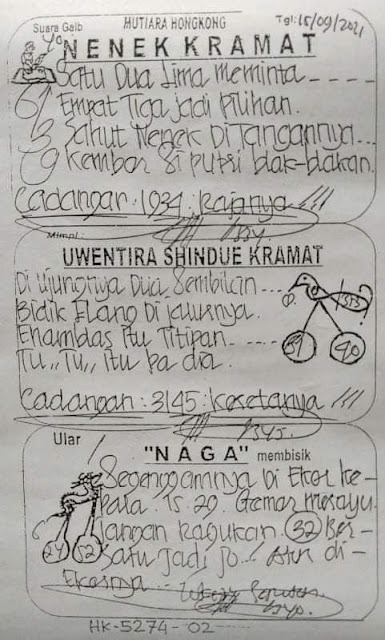 Suara Gaib
MUTIARA HONGKONG
Tgl: 15/09/2021
NENEK KRAMAT
Satu Dua Lima meminta
Empat Tiga jadi Pilihan.
Sahut Nenek Di Tangannya...
Kembar Si putri blak-blakan.
Cadangan: 1934: Rajanya !!!
Mimpi:
UWENTIRA SHINDUE KRAMAT
Di Ujungnya Dua Sembilan
Bidik Elang Di jalurnya.
Enambelas Itu Titipan.
Tu,, Tu,, Itu ba dia.
Cadangan: 3145: Kasetanya !!!
1345.
Ular
"NAGA" membisik
Segenggamnya Di Ekor Ke-
pala 15.29. Gemar merayu
Jangan Ragukan. 32 Ber-
Satu Jadi Jo
Ekornya
HK-5274-02